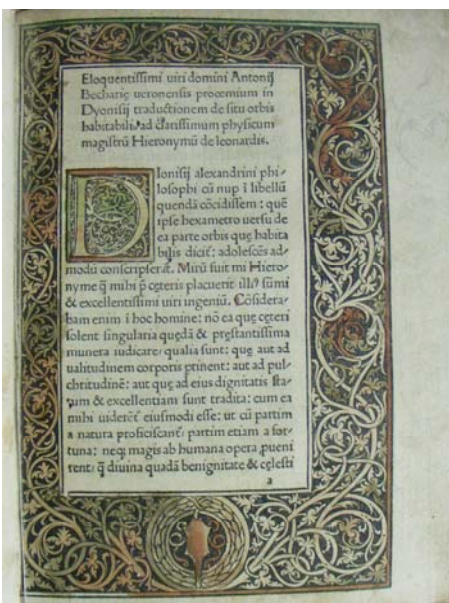 Eloquentissimi uiri domini Antonij
Becharię ueronensis proœmium in
Dyonisij traductionem de situ orbis
habitabilis ad clarissimum physicum
magistrū Hieronymū de leonardis.
Dionisij alexandrini phi-
losophi cū nup ī libellū
quendā cōcidissem: quē
ipse hexametro uersu de
ea parte orbis quę habita
bilis dicit: adolescēs ad-
modū conscripserat. Mirū fuit mi Hiero-
nyme q̄ mihi p̄ cęteris placuerit sūmi
& excellentissimi uiri ingeniū. Cōsidera-
bam enim ī hoc homine: nō ea quę cęteri
solent singularia quędā & pręstantissima
munera iudicare, qualia sunt: quę aut ad
ualitudinem corporis ptinent: aut ad pul-
chritudinē: aut quę ad eius dignitatis sta-
tum & excellentiam sunt tradita: cum ea
mihi uiderēt eiusmodi esse: ut cū partim
a natura proficiscant, partim etiam a for-
tuna: neqȝ magis ab humana opera pueni
rent: q̄ diuina quadā benignitate & cęlesti
a